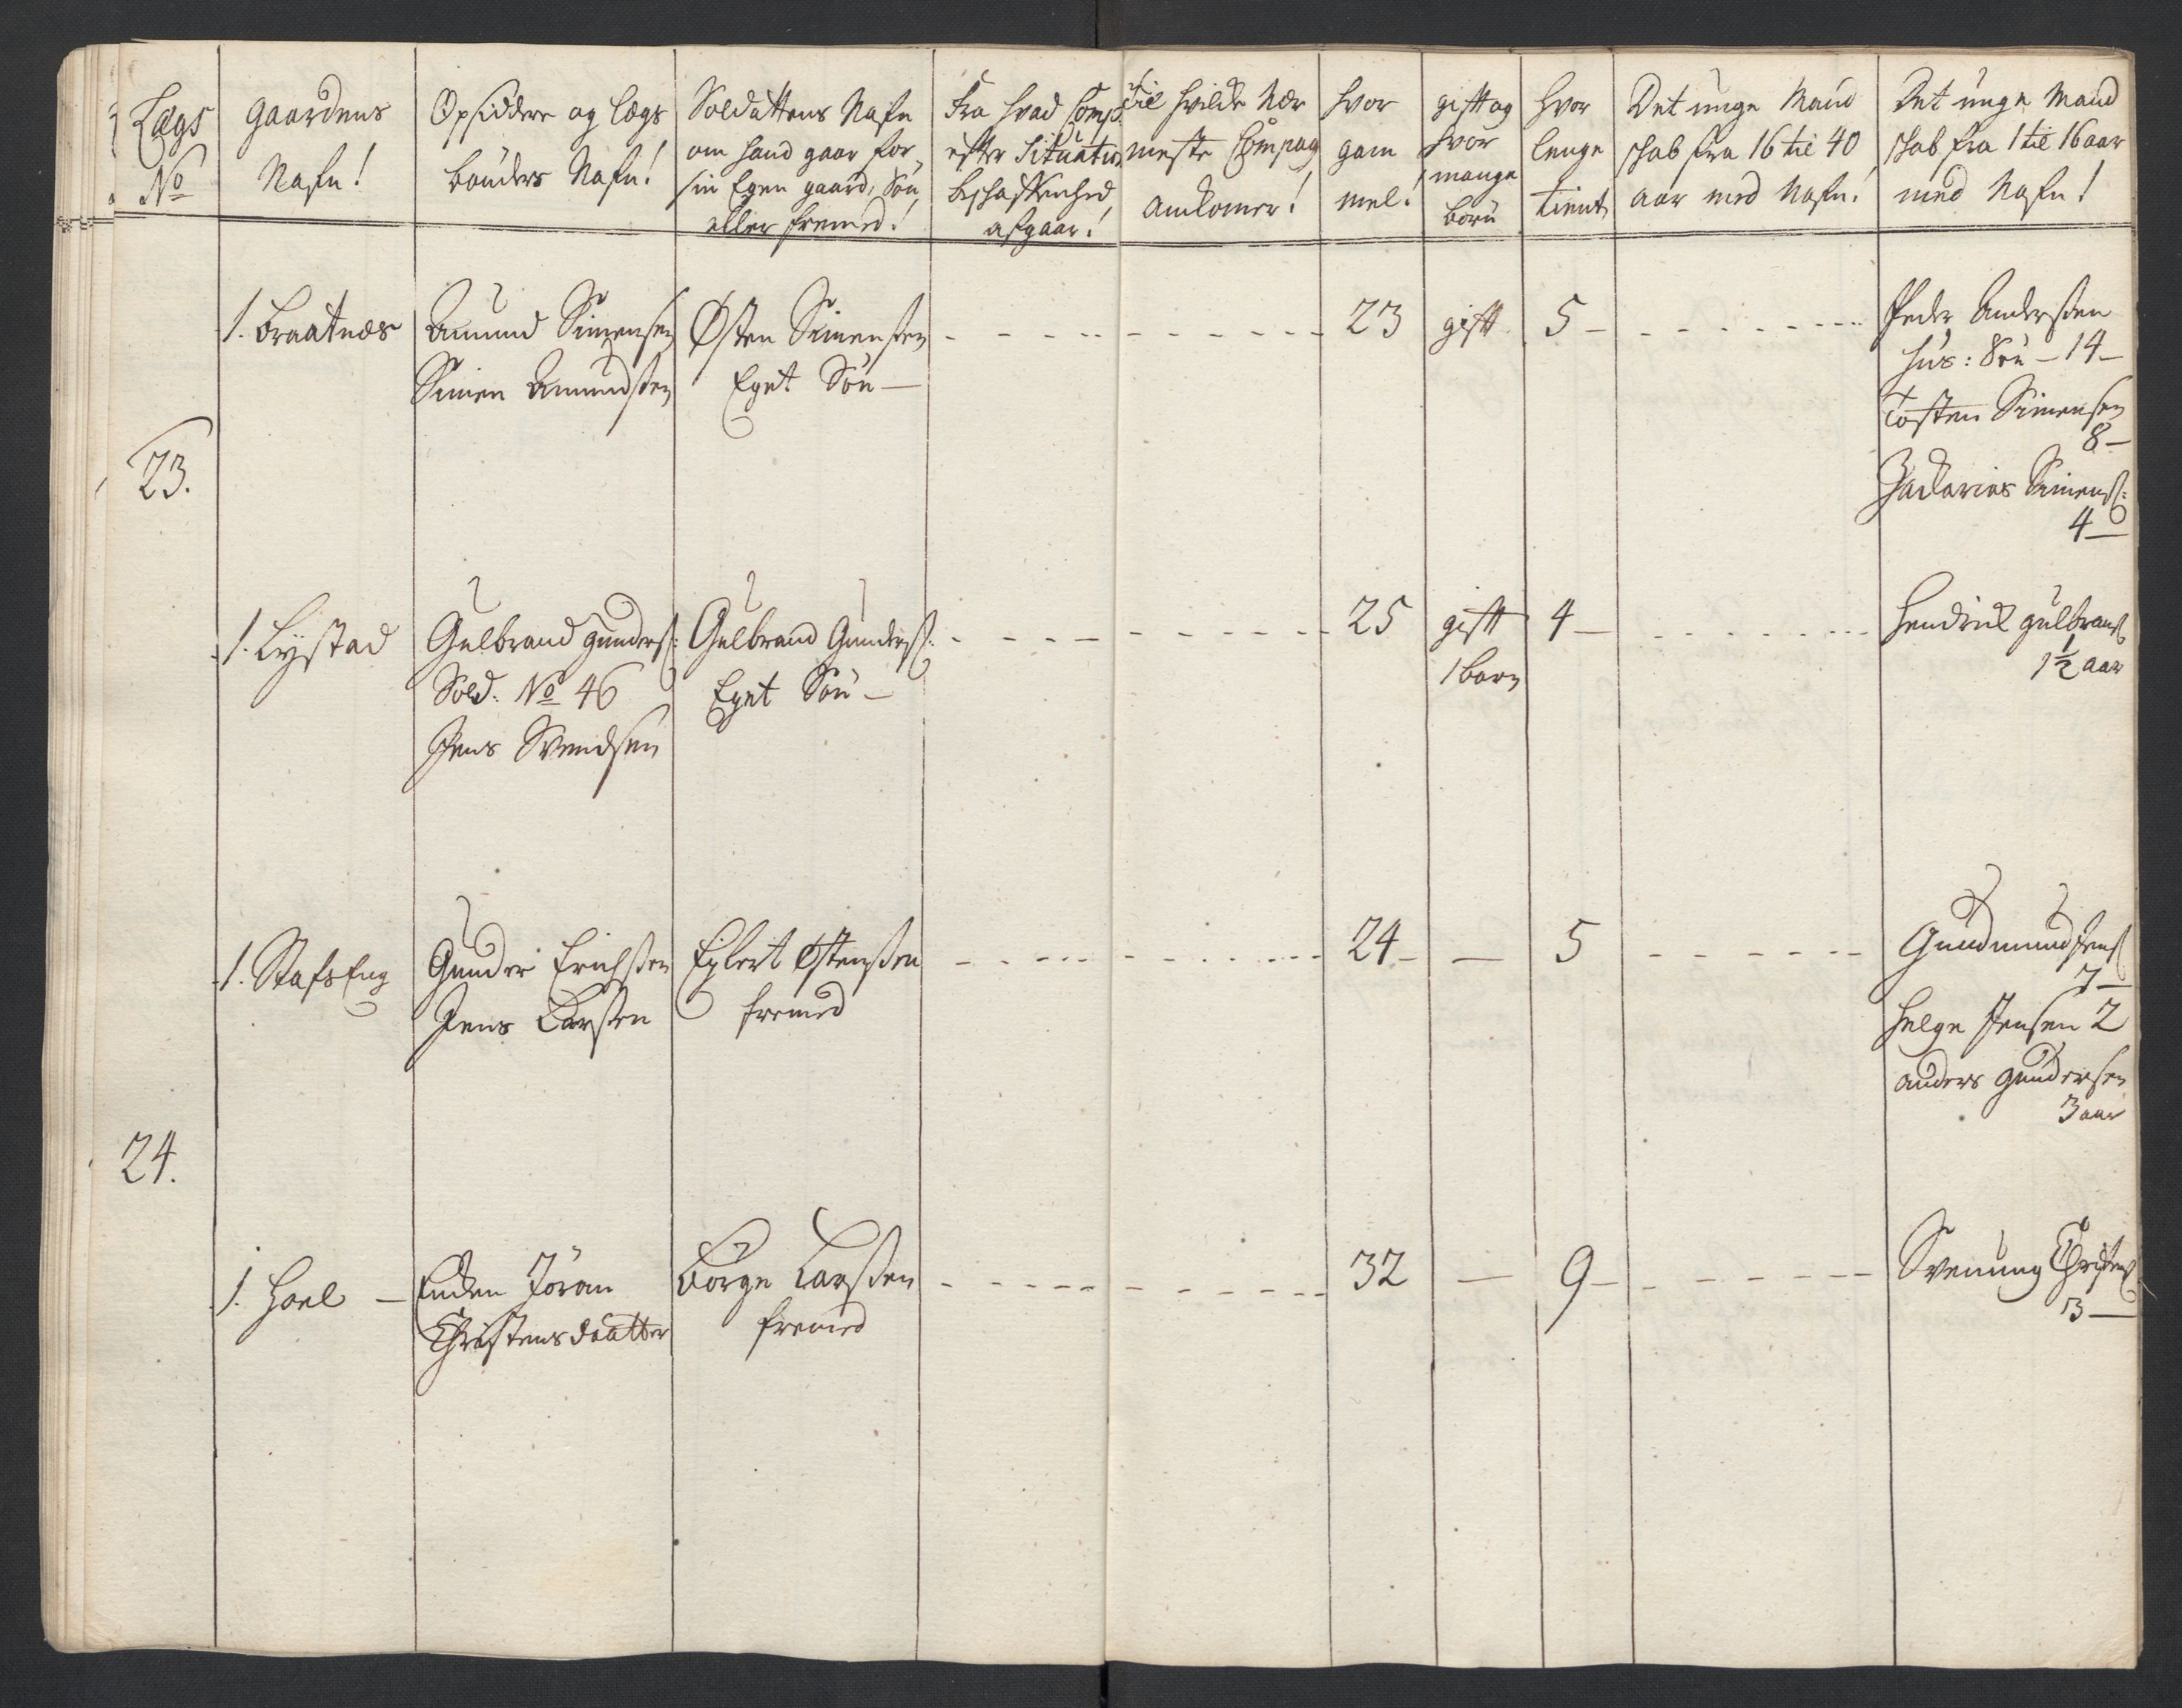 Lægs
No
Gaardens
Nafn!
Opsiddere og Lægs
bönders Nafn!
Soldattens Nafn
om hand gaar for
sin Egen gaard, Sön
eller fremed!
Fra hvad Comp:
efter Situation
beschaffenhed
afgaar!
Til hvilde Nær
meste Compag
ankomer!
hvor
gam
mel!
gift og
hvor
mange
börn
hvor
lenge
tient
Det unge Mand
schab fra 16 til 40
aar med Nafn!
Det unge Mand
schab fra 1 til 16 aar
med Nafn!
23.
1. Braatnæs
Amund Simensen
Simen Amundsen
Østen Simensen
Eget Sön —
23
gift
5 —
Peder Andersen
hus: Sön — 14 —
Tosten Simensen
8 —
Zacharias Simens:
4 —
1. Lÿstad
Gulbrand Gunders:
Sold: No 46
Jens Svendsen
Gulbrand Gunders:
Eget Sön —
25
gift
1 barn
4 —
Hendrick Gulbrans
1½ aar
24.
1. StafsEng
Gunder Erichsen
Jens Larsen
Eylert Østensen
fremed
24 —
—
5
Gudmund Jens
7 —
Helge Jensen 2
Anders Gundersen
3 aar
1. Hoel —
Enken Jöran
Christens daatter
Börge Larsen
fremed
32
—
9 —
Svenung Christens
3 —